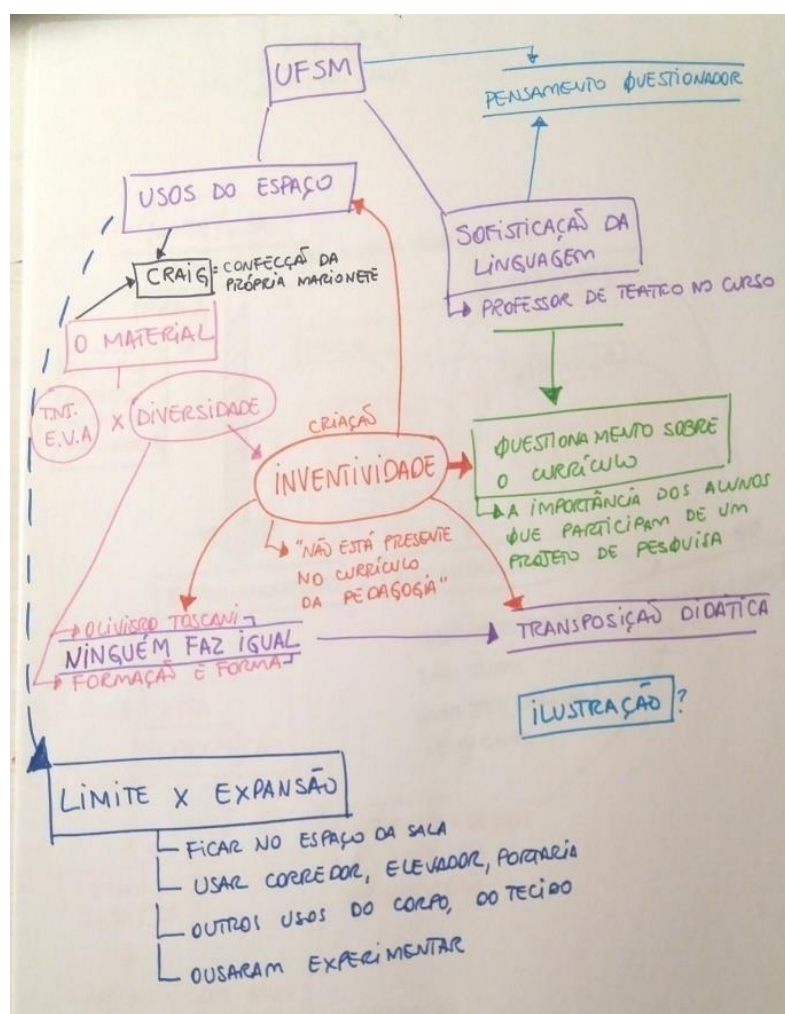 UFSM
PENSAMENTO QUESTIONADOR
USOS DO ESPAÇO
SOFISTICAÇÃO DA
LINGUAGEM
PROFESSOR DE TEATRO NO CURSO
CRAIG = CONFECÇÃO DA
PRÓPRIA MARIONETE
O MATERIAL
T.N.T.
E.V.A
X DIVERSIDADE
CRIAÇÃO
INVENTIVIDADE
"NÃO ESTÁ PRESENTE
NO CURRÍCULO
DA PEDAGOGIA"
QUESTIONAMENTO SOBRE
O CURRÍCULO
A IMPORTÂNCIA DOS ALUNOS
QUE PARTICIPAM DE UM
PROJETO DE PESQUISA
OLIVIERO TOSCANI
NINGUÉM FAZ IGUAL
FORMAÇÃO E FORMA
TRANSPOSIÇÃO DIDÁTICA
ILUSTRAÇÃO?
LIMITE X EXPANSÃO
FICAR NO ESPAÇO DA SALA
USAR CORREDOR, ELEVADOR, PORTARIA
OUTROS USOS DO CORPO, DO TECIDO
OUSARAM EXPERIMENTAR